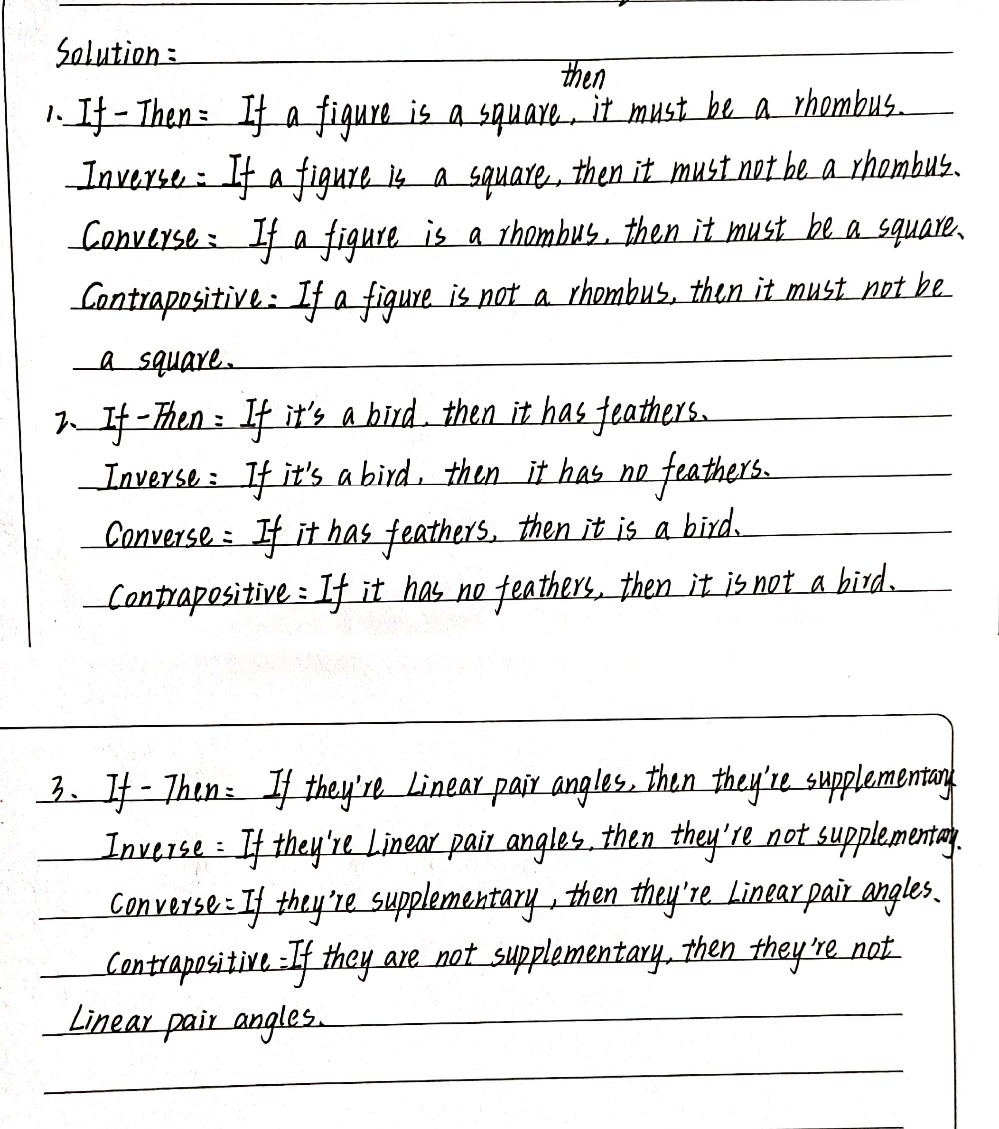 Solution:
then
1. If - Then: If a figure is a square, it must be a rhombus.
Inverse: If a figure is a square, then it must not be a rhombus.
Converse: If a figure is a rhombus, then it must be a square.
Contrapositive: If a figure is not a rhombus, then it must not be
a square.
2. If - Then: If it's a bird, then it has feathers.
Inverse: If it's a bird, then it has no feathers.
Converse: If it has feathers, then it is a bird.
Contrapositive: If it has no feathers, then it is not a bird.
3. If - Then: If they're Linear pair angles, then they're supplementary
Inverse: If they're Linear pair angles, then they're not supplementary.
Converse: If they're supplementary, then they're Linear pair angles.
Contrapositive: If they are not supplementary, then they're not
Linear pair angles.